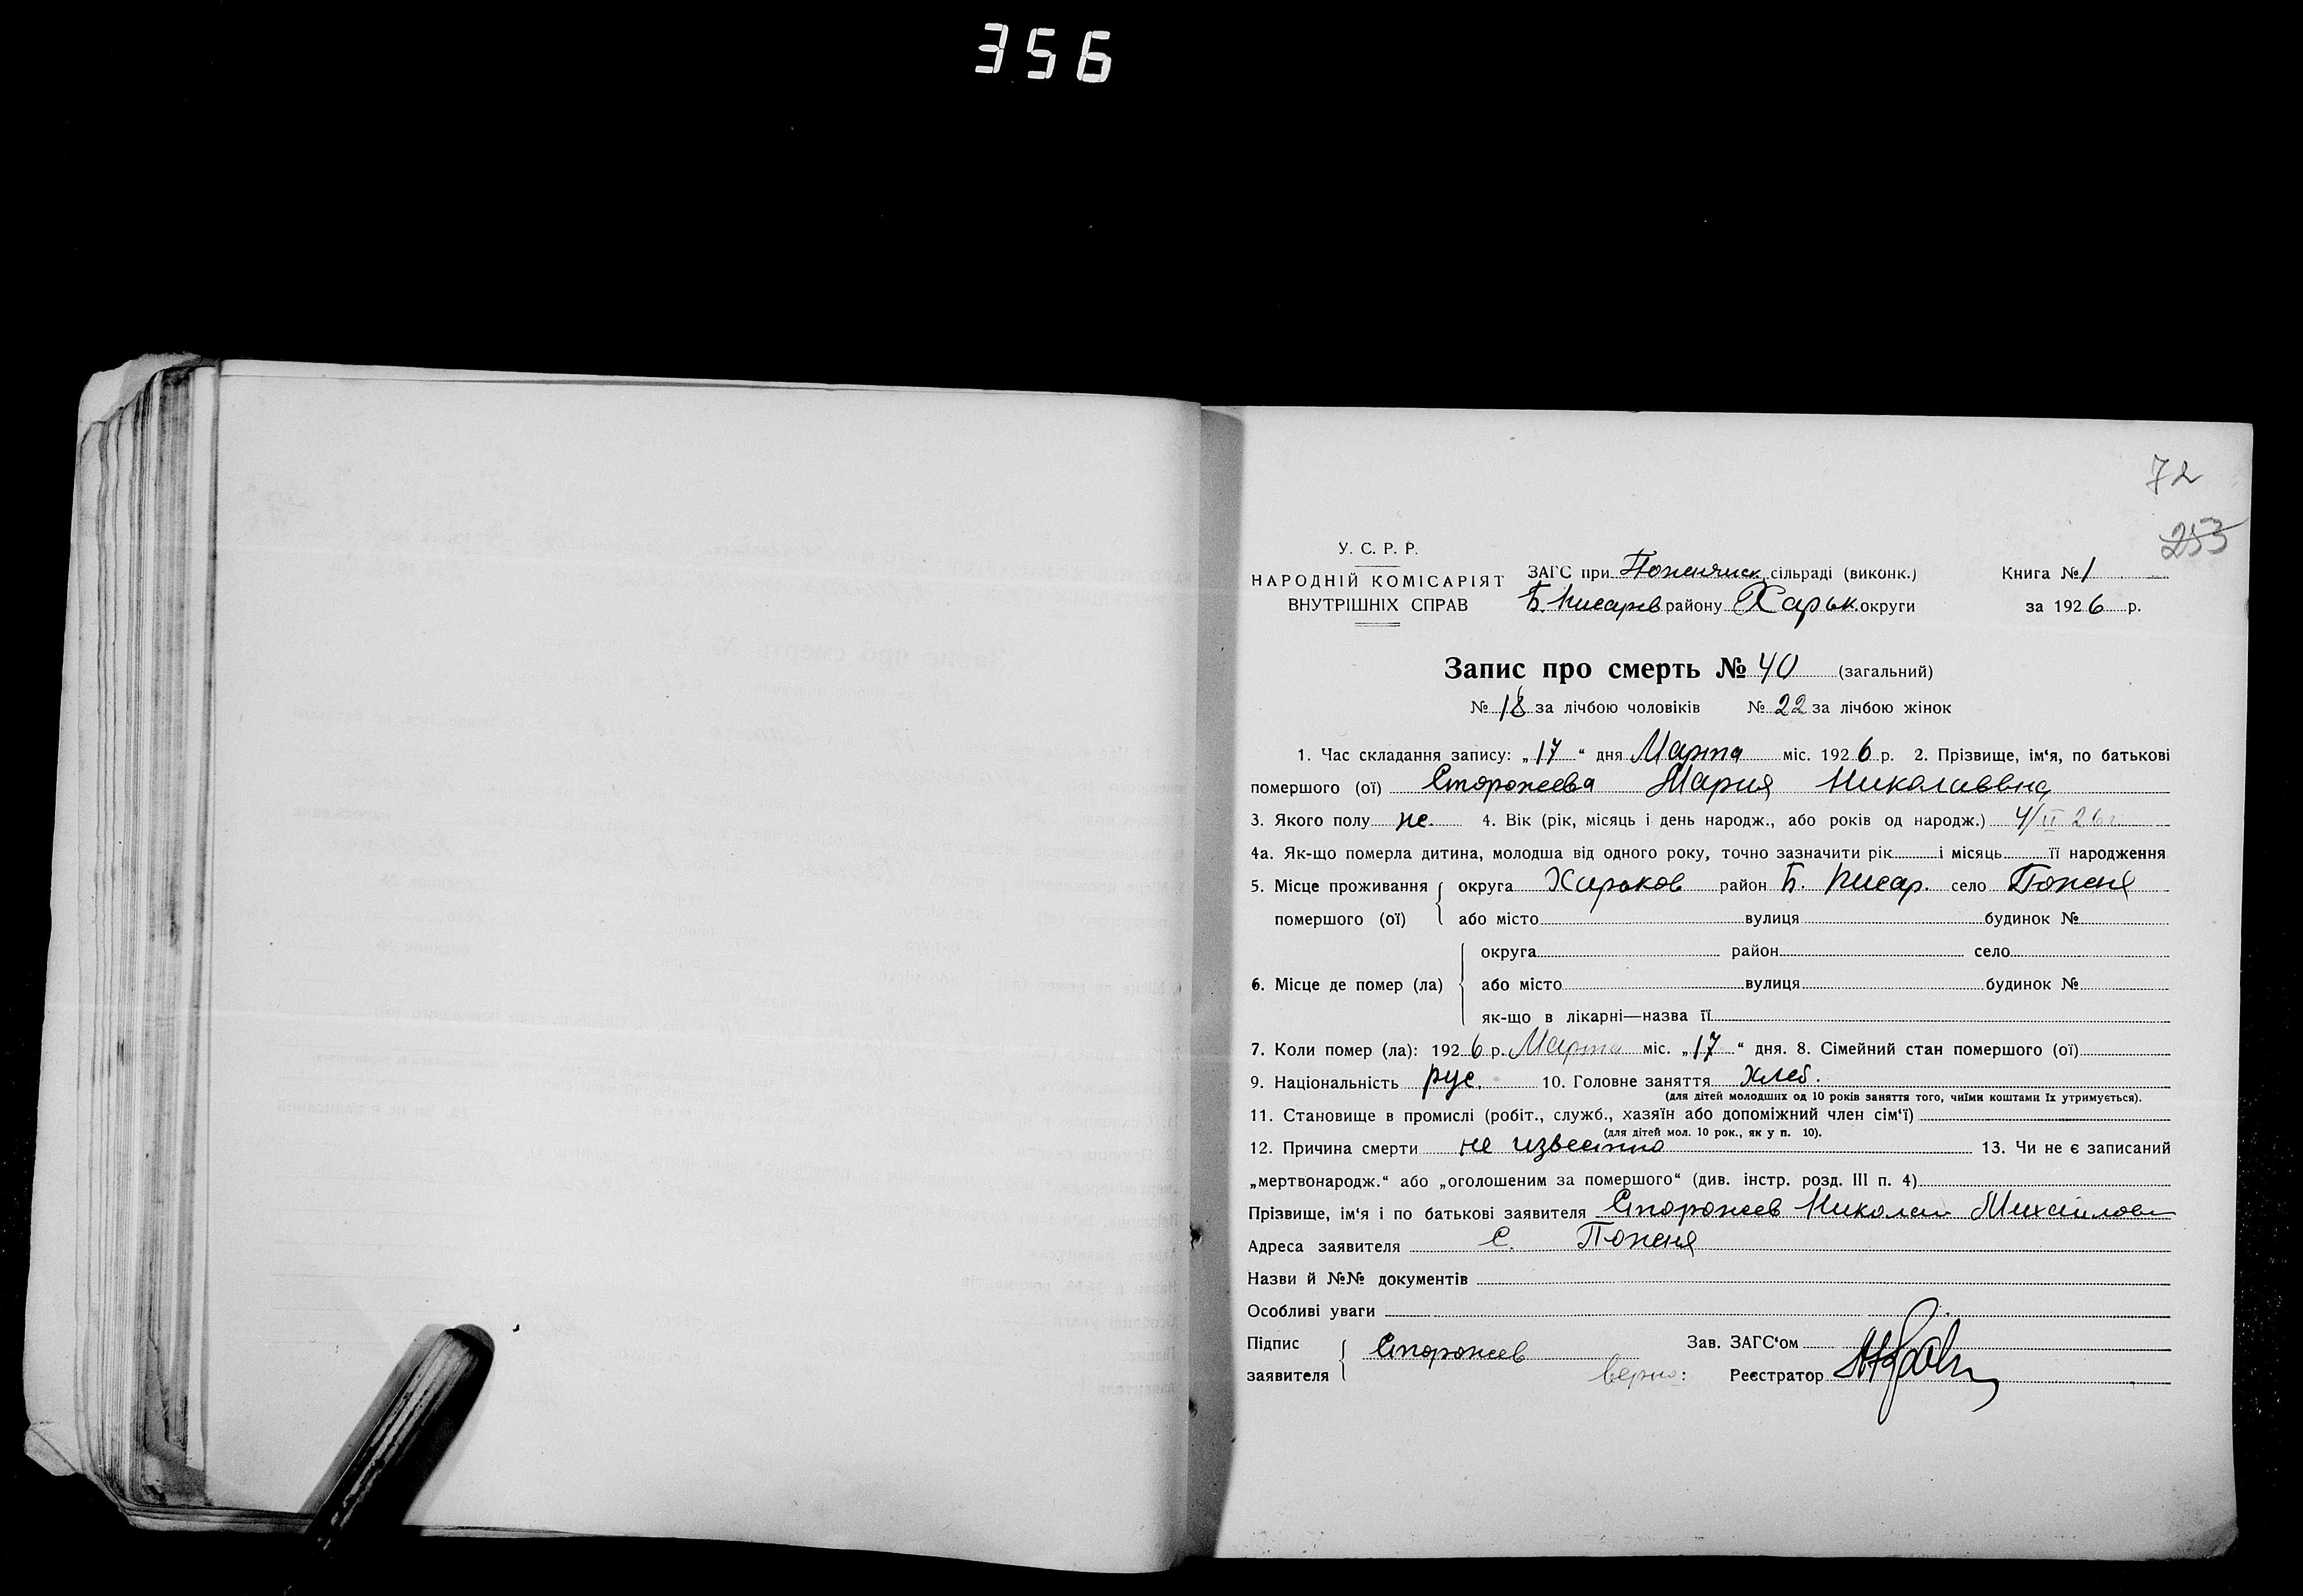 356
72
253
У. С. Р. Р.
НАРОДНІЙ КОМІСАРІЯТ
ВНУТРІШНІХ СПРАВ
ЗАГС при Поженянск сільраді (виконк.)
Б. Писарев району Харьк. округи
Книга № 1
за 1926 р.
Запис про смерть № 40 (загальний)
№ 18 за лічбою чоловіків № 22 за лічбою жінок
1. Час складання запису: „17“ дня Марта міс. 1926 р. 2. Прізвище, ім‘я, по батькові
помершого (ої) Сторожева Мария Николаевна
3. Якого полу же. 4. Вік (рік, місяць і день народж., або років од народж.) 4/II 26 г.
4а. Як-що померла дитина, молодша від одного року, точно зазначити рік і місяць її народження
5. Місце проживання помершого (ої) округа Харьков район Б. Писар. село Поженя
або місто вулиця будинок №
округа район село
6. Місце де помер (ла) або місто вулиця будинок №
як-що в лікарні—назва її
7. Коли помер (ла): 1926 р. Марта міс. „17“ дня. 8. Сімейний стан помершого (ої)
9. Національність рус. 10. Головне заняття хлеб.
(для дітей молодших од 10 років заняття того, чиїми коштами їх утримується).
11. Становище в промислі (робіт., служб., хазяїн або допоміжний член сім‘ї)
(для дітей мол. 10 рок., як у п. 10).
12. Причина смерти не известно 13. Чи не є записаний
„мертвонародж.“ або „оголошеним за помершого“ (див. інстр. розд. III п. 4)
Прізвище, ім‘я і по батькові заявителя Сторожев Николай Михайлов
Адреса заявителя с. Поженя
Назви й №№ документів
Особливі уваги
Підпис заявителя Сторожев
Зав. ЗАГС‘ом
верно: Реєстратор